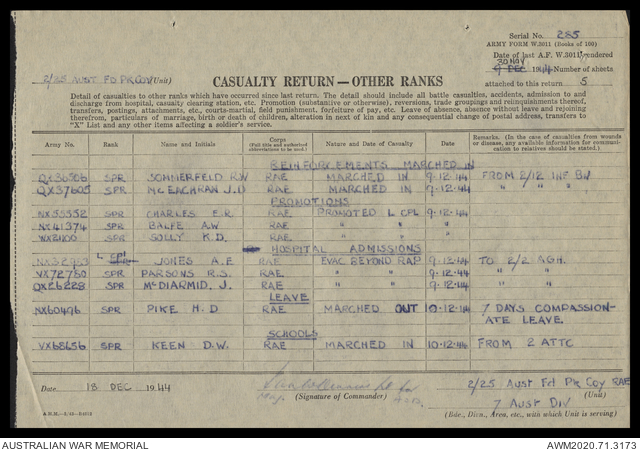 Serial No. 285
ARMY FORM W.3011 (Books of 100)
Date of last A.F. W.3011 rendered
30 NOV
9 DEC 1944 Number of sheets
attached to this return 5
2/25 AUST FD PK COY (Unit)
CASUALTY RETURN—OTHER RANKS
Detail of casualties to other ranks which have occurred since last return. The detail should include all battle casualties, accidents, admission to and
discharge from hospital, casualty clearing station, etc. Promotion (substantive or otherwise), reversions, trade groupings and relinquishments thereof,
transfers, postings, attachments, etc., courts-martial, field punishment, forfeiture of pay, etc. Leave of absence, absence without leave and rejoining
therefrom, particulars of marriage, birth or death of children, alteration in next of kin and any consequential change of postal address, transfers to
"X" List and any other items affecting a soldier's service.
Army No. Rank Name and Initials Corps (Full and authorised abbreviations to be used.) Nature and Date of Casualty Date Remarks. (In the case of casualties from wounds or disease, any available information for communication to relatives should be stated.)
REINFORCEMENTS MARCHED IN
QX36506 SPR SOMMERFELD R.W RAE MARCHED IN 9-12-44 FROM 2/12 INF BN
QX37605 SPR McEACHRAN J.D RAE MARCHED IN 9-12-44 " " " "
PROMOTIONS
NX35352 SPR CHARLES E.R. RAE PROMOTED L CPL 9-12-44
NX41374 SPR BALFE A.W RAE " " " 9-12-44
WX21100 SPR SOLLY K.D. RAE " " " 9-12-44
HOSPITAL ADMISSIONS
NX32953 L CPL SPR JONES A.E RAE EVAC BEYOND RAP 9-12-44 TO 2/2 AGH.
VX72780 SPR PARSONS R.S. RAE " " 9-12-44 " "
QX26228 SPR McDIARMID, J. RAE " " 9-12-44 " "
LEAVE
NX60496 SPR PIKE H.D RAE MARCHED OUT 10-12-44 7 DAYS COMPASSION-
ATE LEAVE.
SCHOOLS
VX68656 SPR KEEN D.W. RAE MARCHED IN 10-12-44 FROM 2 ATTC
Date 18 DEC 1944
(Signature of Commander)
2/25 Aust Fd Pk Coy RAE
(Unit)
7 Aust Div
(Bde., Divn., Area, etc., with which Unit is serving)
AUSTRALIAN WAR MEMORIAL
AWM2020.71.3173